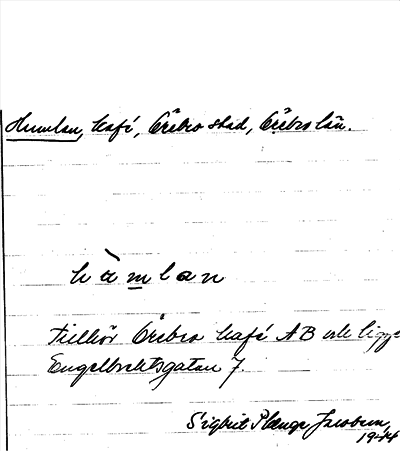 Humlan, kafé, Örebro stad, Örebro län.
hùmlan
Tillhör Örebro kafé AB och ligger
Engelbrektsgatan 7.
Sigbrit Plænge Jacobson,
1944